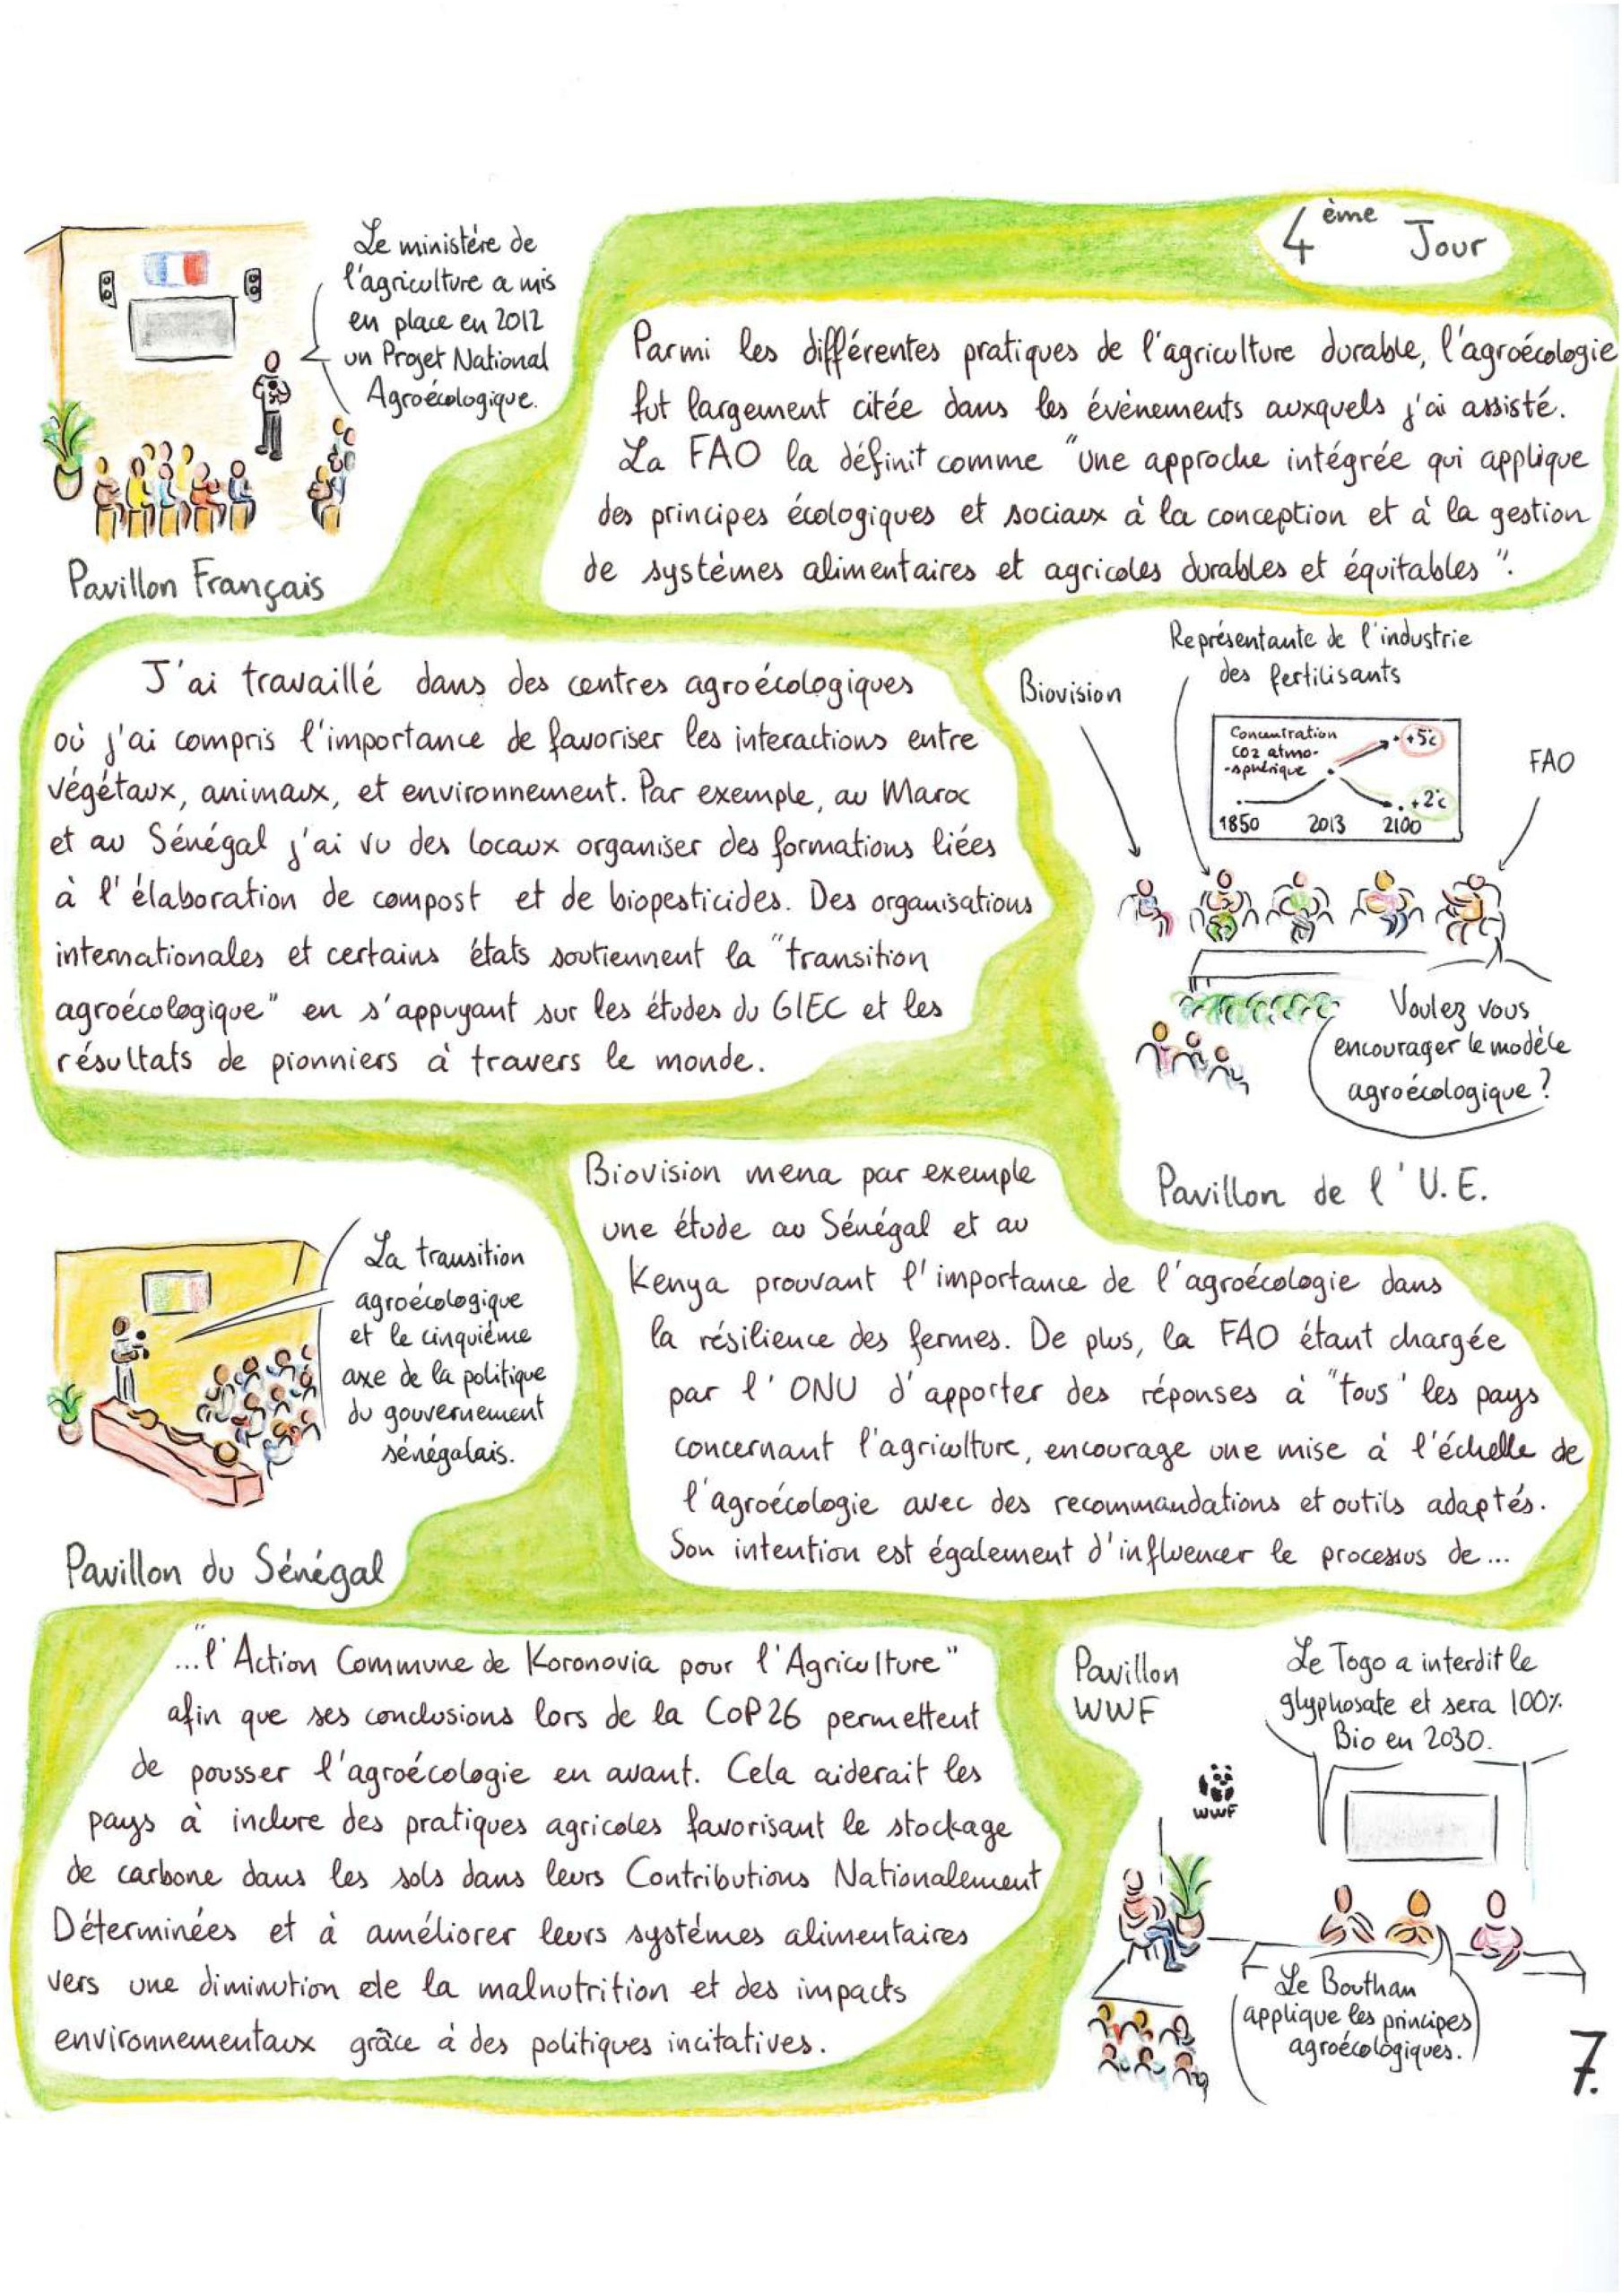 4ème Jour
Le ministère de
l'agriculture a mis
en place en 2012
un Projet National
Agroécologique.
Pavillon Français
Parmi les différentes pratiques de l'agriculture durable, l'agroécologie
fut largement citée dans les évènements auxquels j'ai assisté.
La FAO la définit comme "une approche intégrée qui applique
des principes écologiques et sociaux à la conception et à la gestion
de systèmes alimentaires et agricoles durables et équitables".
J'ai travaillé dans des centres agroécologiques
où j'ai compris l'importance de favoriser les interactions entre
végétaux, animaux, et environnement. Par exemple, au Maroc
et au Sénégal j'ai vu des locaux organiser des formations liées
à l'élaboration de compost et de biopesticides. Des organisations
internationales et certains états soutiennent la "transition
agroécologique" en s'appuyant sur les études du GIEC et les
résultats de pionniers à travers le monde.
Représentante de l'industrie
des fertilisants
Biovision
FAO
Concentration
CO2 atmo-
-sphérique
+5°c
+2°c
1850 2013 2100
Voulez vous
encourager le modèle
agroécologique?
Pavillon de l'U.E.
La transition
agroécologique
et le cinquième
axe de la politique
du gouvernement
sénégalais.
Pavillon du Sénégal
Biovision mena par exemple
une étude au Sénégal et au
Kenya prouvant l'importance de l'agroécologie dans
la résilience des fermes. De plus, la FAO étant chargée
par l'ONU d'apporter des réponses à "tous" les pays
concernant l'agriculture, encourage une mise à l'échelle de
l'agroécologie avec des recommandations et outils adaptés.
Son intention est également d'influencer le processus de...
..."l'Action Commune de Koronovia pour l'Agriculture"
afin que ses conclusions lors de la COP26 permettent
de pousser l'agroécologie en avant. Cela aiderait les
pays à inclure des pratiques agricoles favorisant le stockage
de carbone dans les sols dans leurs Contributions Nationalement
Déterminées et à améliorer leurs systèmes alimentaires
vers une diminution de la malnutrition et des impacts
environnementaux grâce à des politiques incitatives.
Pavillon
WWF
Le Togo a interdit le
glyphosate et sera 100%
Bio en 2030.
WWF
Le Bouthan
applique les principes
agroécologiques.
7.